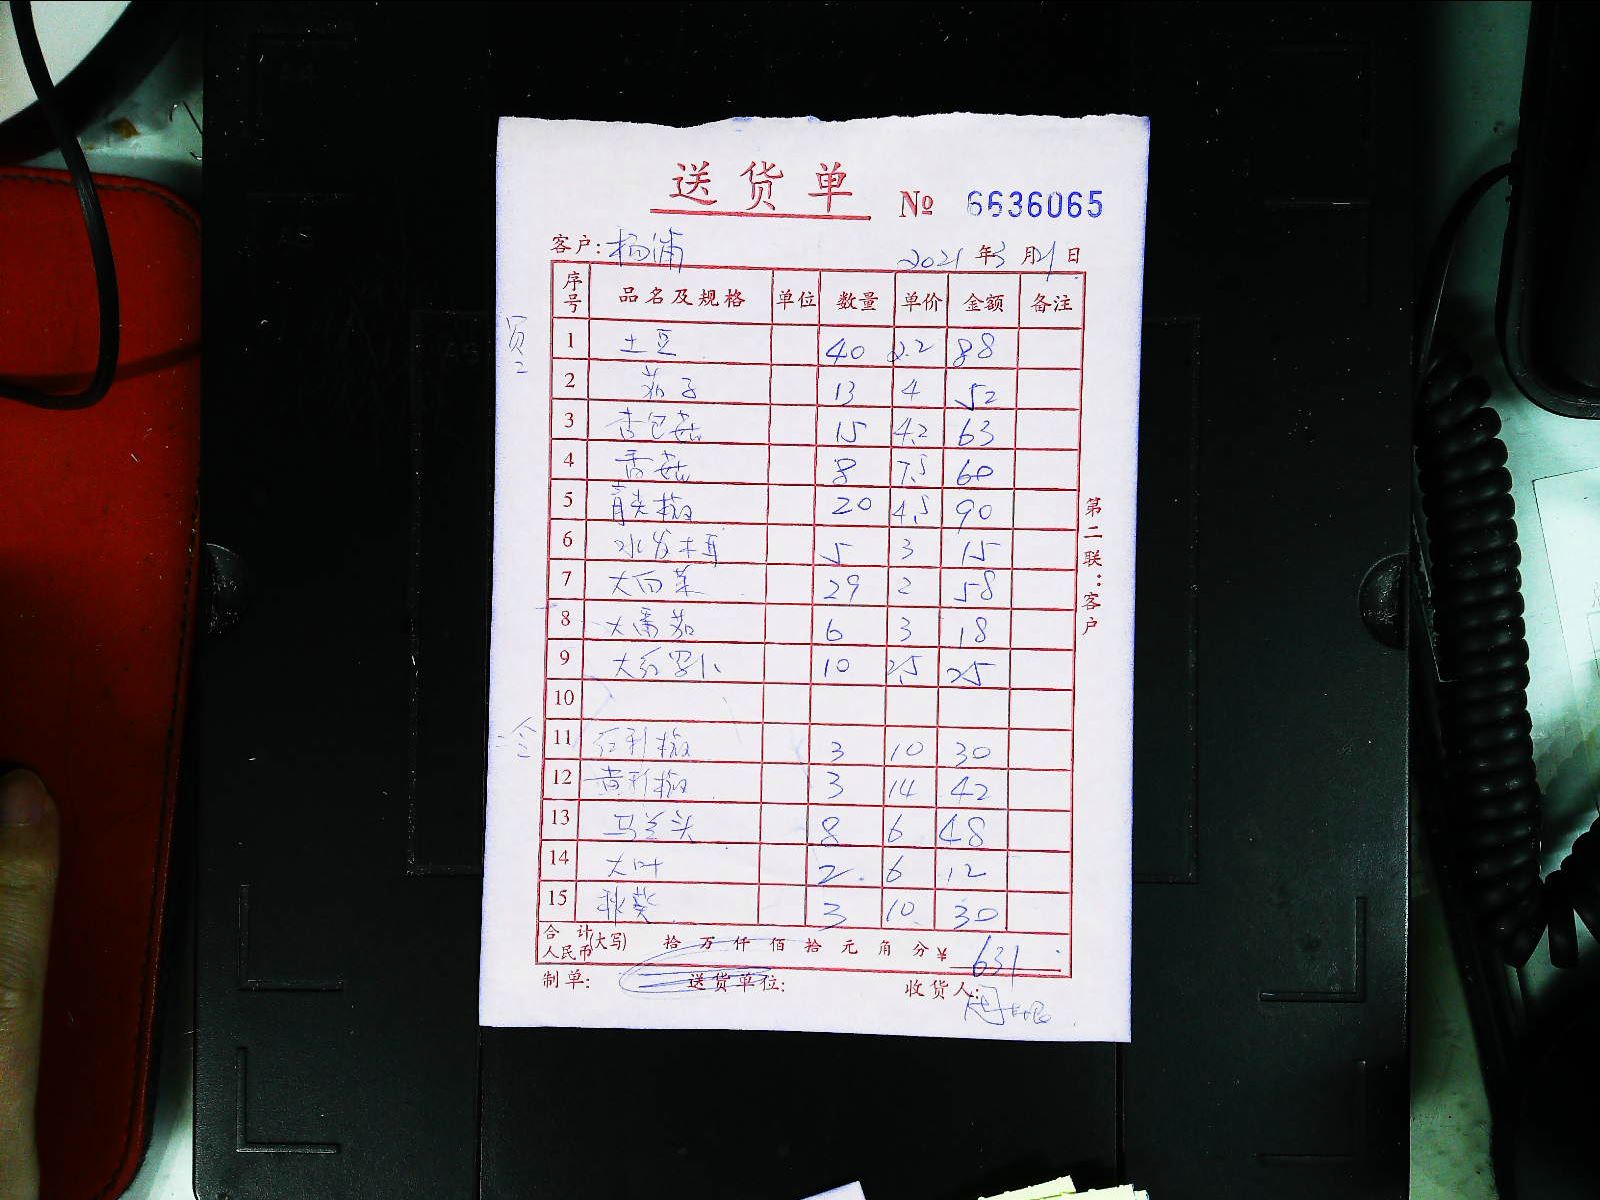 送货单 № 6636065
客户: 杨浦 2021 年 3 月 21 日
序号 品名及规格 单位 数量 单价 金额 备注
1 土豆 40 2.2 88
2 茄子 13 4 52
3 杏包菇 15 4.2 63
4 香菇 8 7.5 60
5 青尖椒 20 4.5 90
6 水发木耳 5 3 15
7 大白菜 29 2 58
8 大番茄 6 3 18
9 大红罗卜 10 2.5 25
10
11 红彩椒 3 10 30
12 黄彩椒 3 14 42
13 马兰头 8 6 48
14 大叶 2 6 12
15 秋葵 3 10 30
合计人民币(大写) 拾 万 仟 佰 拾 元 角 分 ¥ 631
制单: 送货单位: 收货人:
第二联：客户